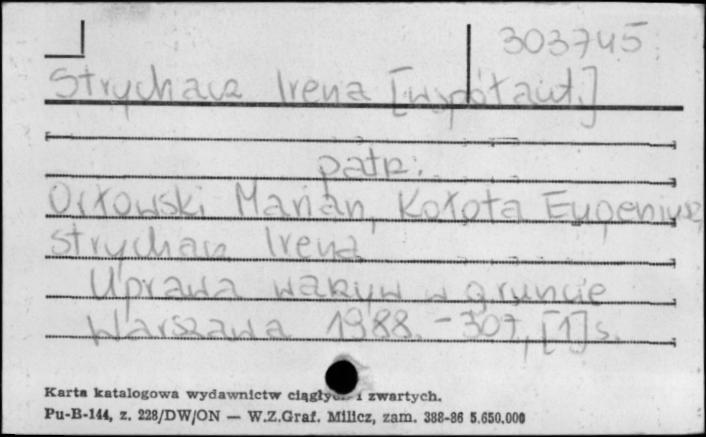 303745
Strychacz Irena [współaut.]
patrz:
Orłowski Marian, Kołota Eugeniusz,
Strychacz Irena
Uprawa warzyw w gruncie
Warszawa 1988. - 307, [1] s.
Karta katalogowa wydawnictw ciągłych i zwartych.
Pu-B-144, z. 228/DW/ON — W.Z.Graf. Milicz, zam. 388-86 5.650.000